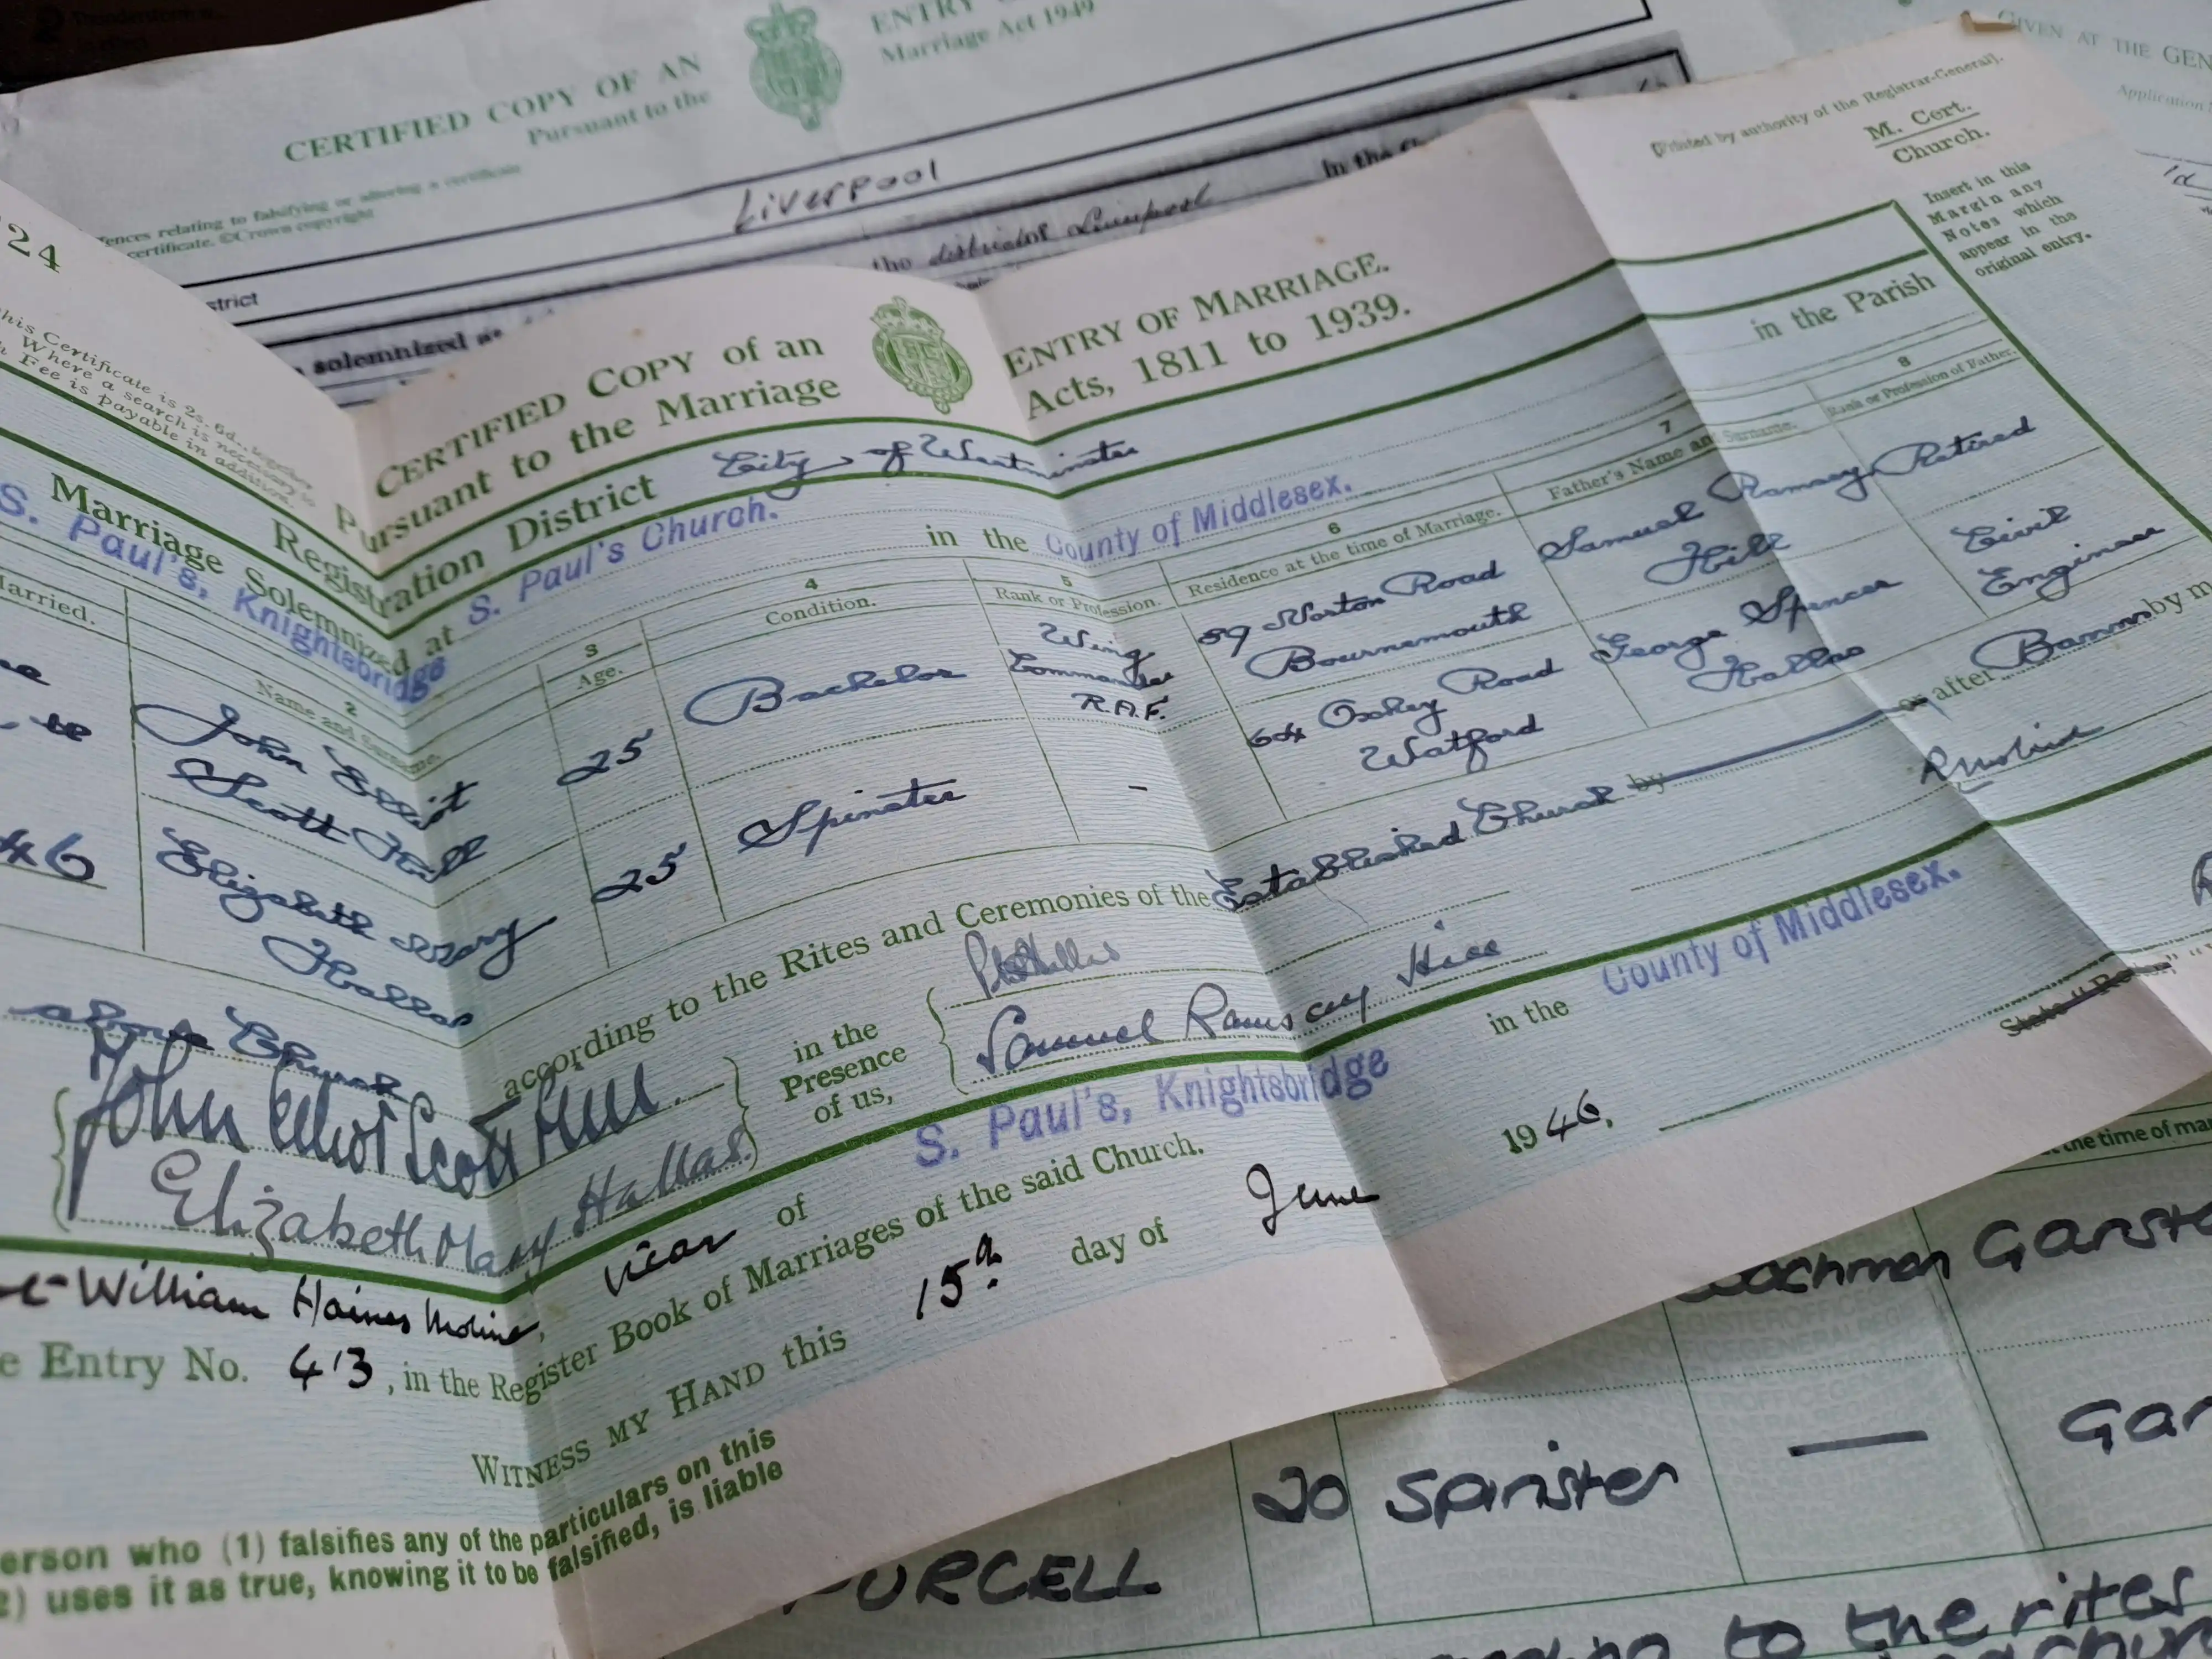 CERTIFIED COPY OF AN
ENTRY
Pursuant to the
Marriage Act 1949
GIVEN AT THE GEN
Application
ences relating to falsifying or altering a certificate
certificate. ©Crown copyright
Liverpool
strict
the district of Liverpool
in the
solemnized at
24
his Certificate is 2s. 6d., together
Where a search is necessary to
Fee is payable in addition.
[Printed by authority of the Registrar-General].
M. Cert.
Church.
Insert in this
Margin any
Notes which
appear in the
original entry.
CERTIFIED COPY of an
ENTRY OF MARRIAGE.
Pursuant to the Marriage
Acts, 1811 to 1939.
Registration District City of Westminster
Marriage Solemnized at S. Paul's Church.
in the Parish
S. Paul's, Knightsbridge
in the County of Middlesex.
2 3 4 5 6 7 8
arried.
Name and Surname.
Age.
Condition.
Rank or Profession.
Residence at the time of Marriage.
Father's Name and Surname.
Rank or Profession of Father.
46
John Elliot
Scott Hill
25
Bachelor
Wing
Commander
R.A.F.
89 Norton Road
Bournemouth
Samuel Ramsey
Hill
Retired
Elizabeth Mary
Hallas
25
Spinster
-
64 Oxhey Road
Watford
George Spencer
Hallas
Civil
Engineer
above Church
according to the Rites and Ceremonies of the Established Church by
or after Banns by m
John Elliot Scott Hill.
Elizabeth Mary Hallas.
in the
Presence
of us,
Samuel Ramsey Hill
William Haines Moline, Vicar of S. Paul's, Knightsbridge
in the County of Middlesex.
e Entry No. 413, in the Register Book of Marriages of the said Church.
WITNESS MY HAND this 15th day of June 1946.
erson who (1) falsifies any of the particulars on this
2) uses it as true, knowing it to be falsified, is liable
the time of mar
Garst
20
Spinster
—
Gar
PURCELL
to the rites